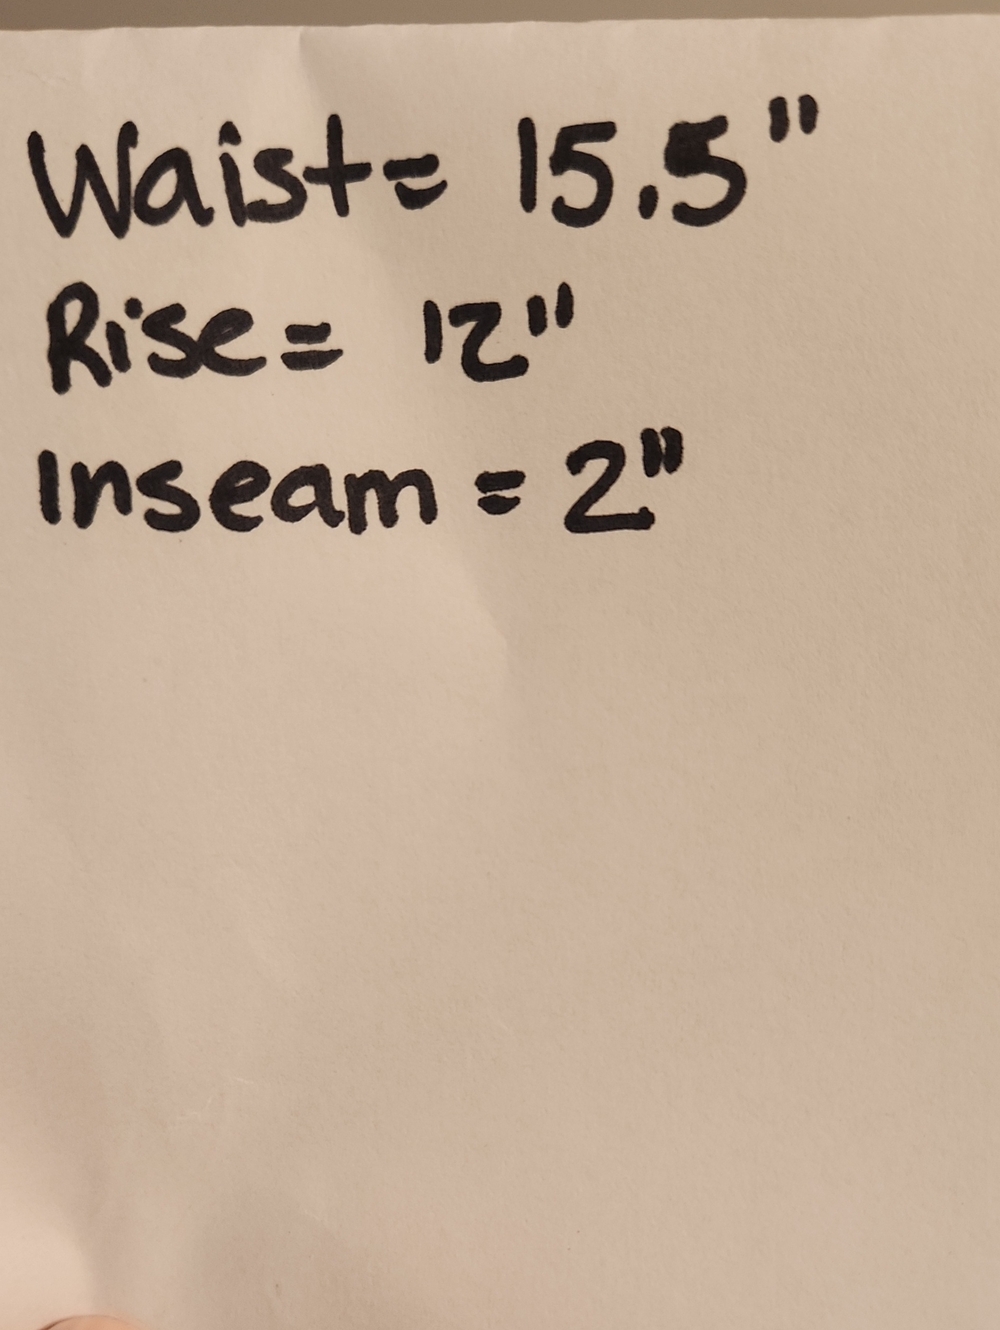 Waist= 15.5"
Rise= 12"
Inseam = 2"